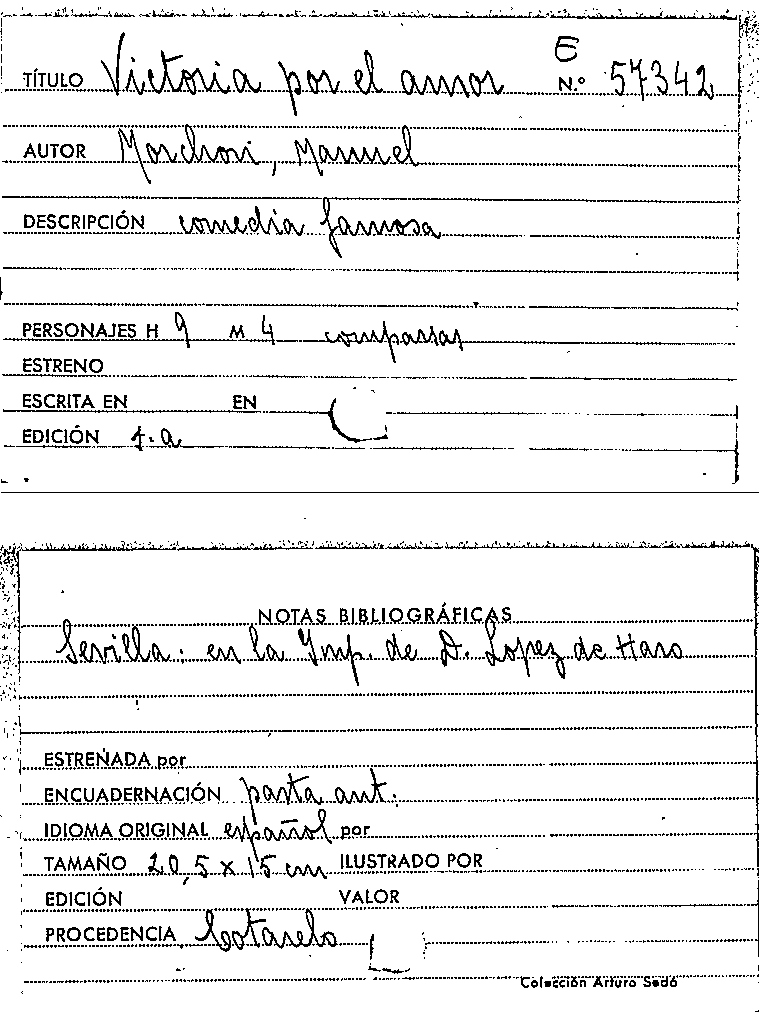 TÍTULO Victoria por el amor E N.º 57342
AUTOR Morchon, Manuel
DESCRIPCIÓN comedia famosa
PERSONAJES H 9 M 4 comparsas
ESTRENO
ESCRITA EN EN
EDICIÓN 1.a
NOTAS BIBLIOGRÁFICAS
Sevilla: en la Imp. de D. Lopez de Haro
ESTREÑADA por
ENCUADERNACIÓN pasta ant.
IDIOMA ORIGINAL español por
TAMAÑO 20,5 x 15 cm ILUSTRADO POR
EDICIÓN VALOR
PROCEDENCIA Cotarelo
Colección Arturo Sedó